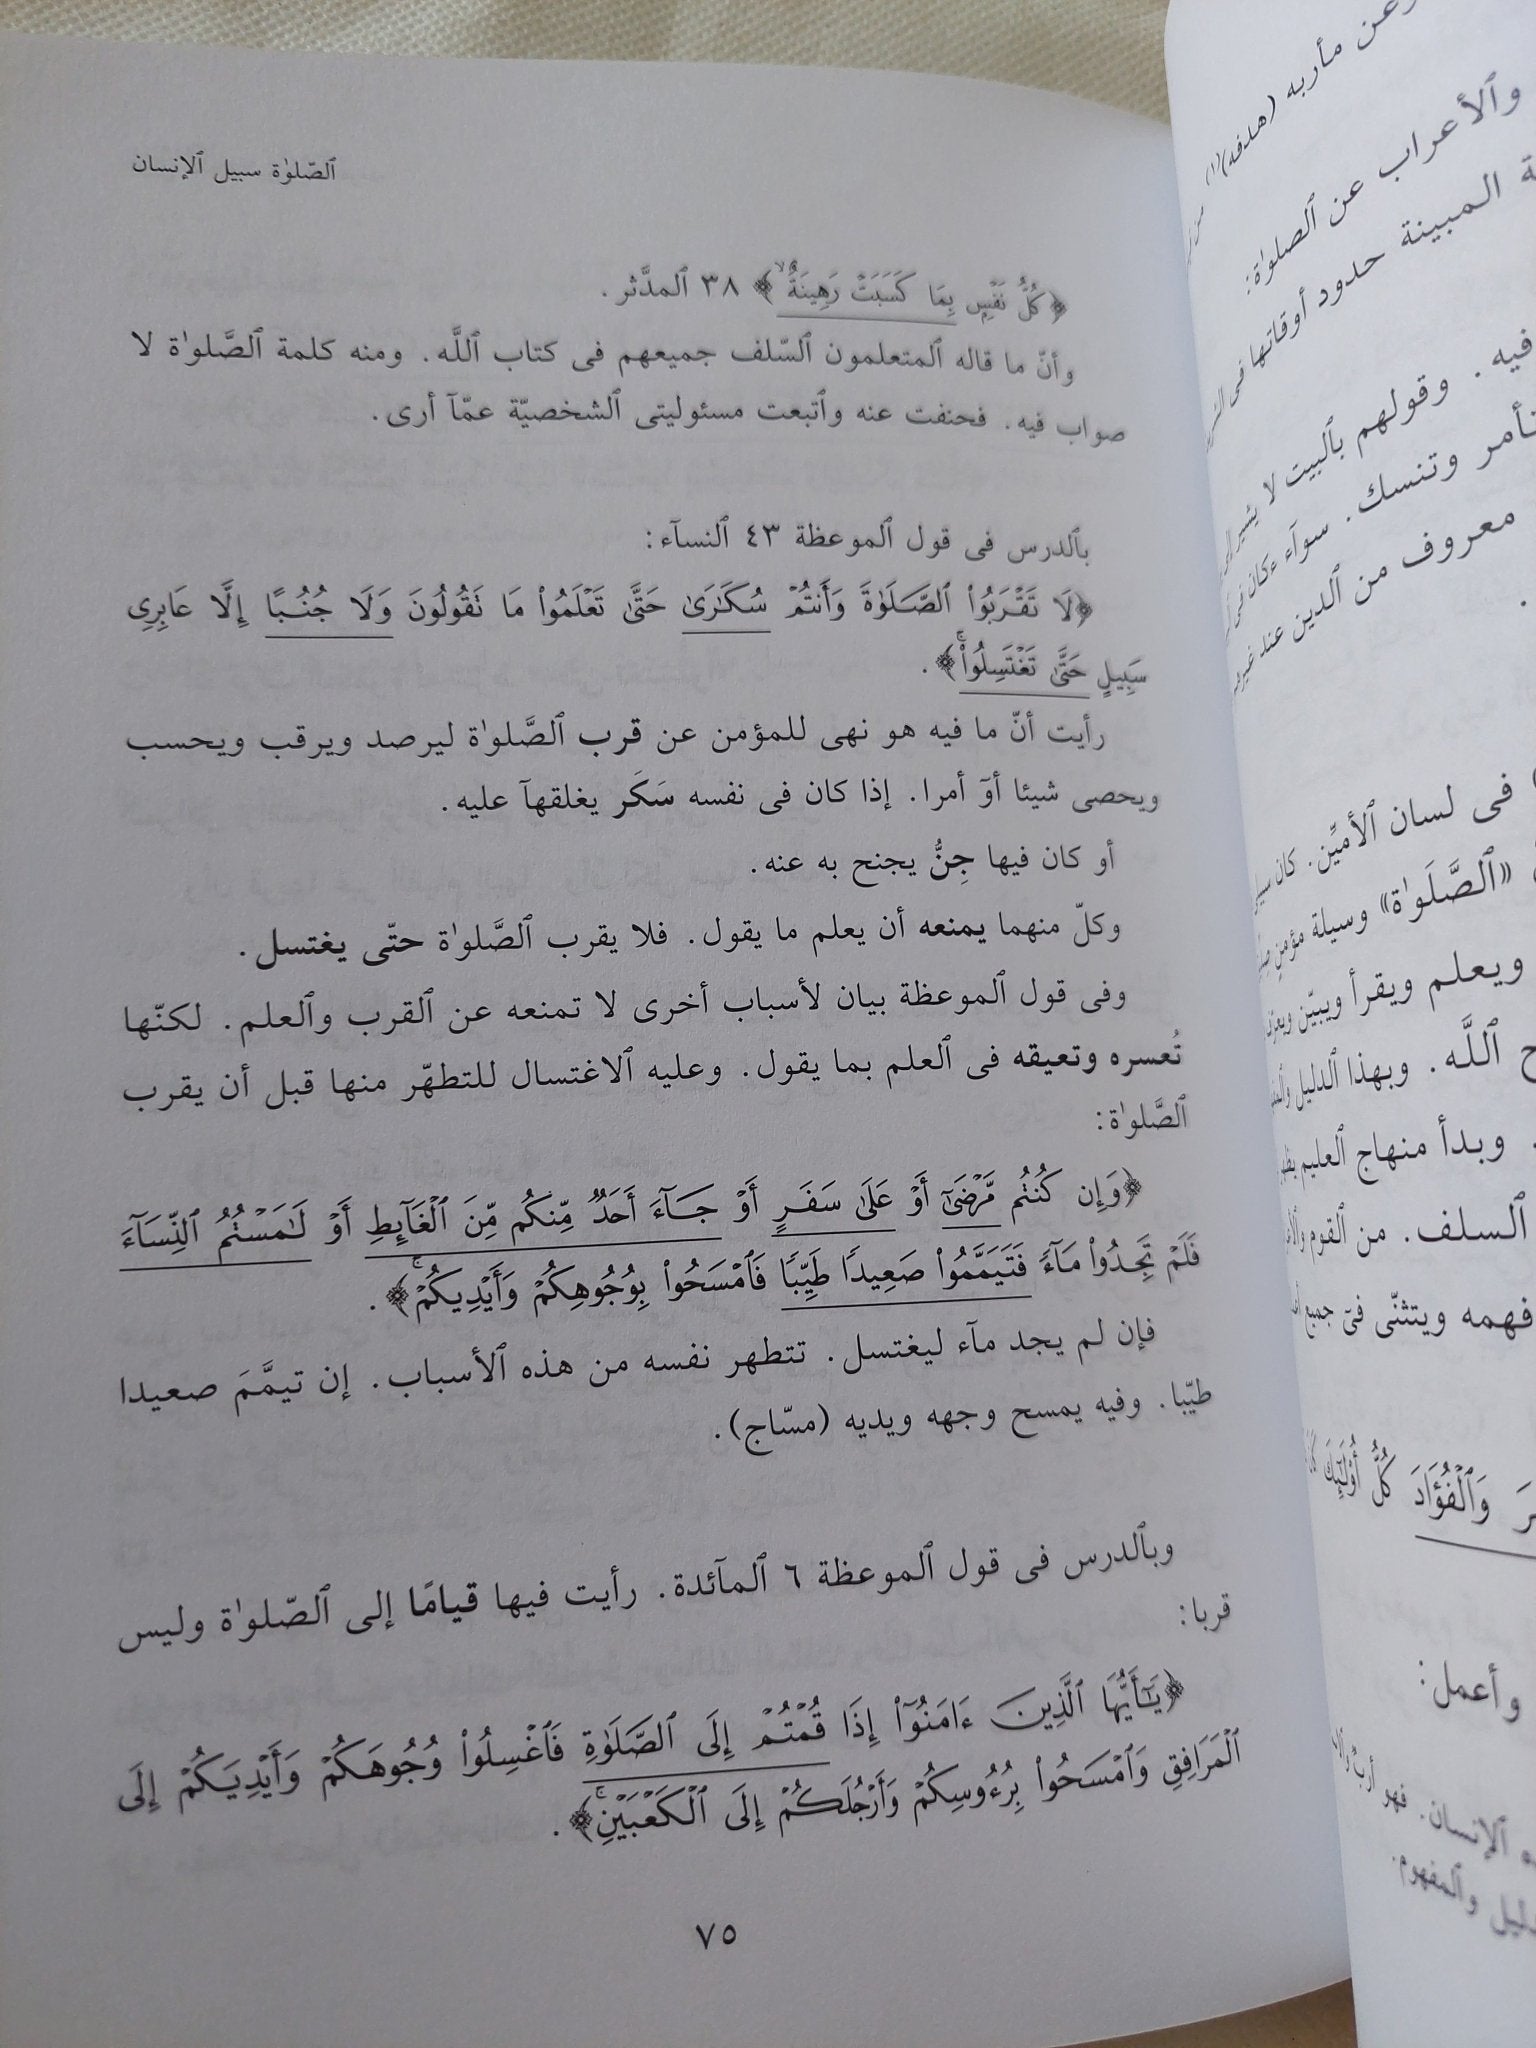 ٱلصّلوٰة سبيل ٱلإنسان
﴿كُلُّ نَفۡسِۭ بِمَا كَسَبَتۡ رَهِينَةٌ﴾ ٣٨ ٱلمدَّثر.
وأنّ ما قاله ٱلمتعلمون ٱلسّلف جميعهم فى كتاب ٱللَّه. ومنه كلمة ٱلصَّلوٰة لا
صواب فيه. فحنفت عنه وٱتبعت مسئوليتى ٱلشخصيّة عمّآ أرى.
بٱلدرس فى قول ٱلموعظة ٤٣ ٱلنسآء:
﴿لَا تَقۡرَبُواْ ٱلصَّلَوٰةَ وَأَنتُمۡ سُكَٰرَىٰ حَتَّىٰ تَعۡلَمُواْ مَا تَقُولُونَ وَلَا جُنُبًا إِلَّا عَابِرِى
سَبِيلٍ حَتَّىٰ تَغۡتَسِلُواْۚ﴾.
رأيت أنّ ما فيه هو نهى للمؤمن عن قرب ٱلصَّلوٰة ليرصد ويرقب ويحسب
ويحصى شيئا أوۤ أمرا. إذا كان فى نفسه سَكَر يغلقهآ عليه.
أو كان فيها جِنُّ يجنح به عنه.
وكلّ منهما يمنعه أن يعلم ما يقول. فلا يقرب ٱلصَّلوٰة حتّى يغتسل.
وفى قول ٱلموعظة بيان لأسباب أخرى لا تمنعه عن ٱلقرب وٱلعلم. لكنّها
تُعسره وتعيقه فى ٱلعلم بما يقول. وعليه ٱلاغتسال للتطهّر منها قبل أن يقرب
ٱلصَّلوٰة:
﴿وَإِن كُنتُم مَّرۡضَىٰٓ أَوۡ عَلَىٰ سَفَرٍ أَوۡ جَآءَ أَحَدٌ مِّنكُم مِّنَ ٱلۡغَآئِطِ أَوۡ لَٰمَسۡتُمُ ٱلنِّسَآءَ
فَلَمۡ تَجِدُواْ مَآءً فَتَيَمَّمُواْ صَعِيدًا طَيِّبًا فَٱمۡسَحُواْ بِوُجُوهِكُمۡ وَأَيۡدِيكُمۡۚ﴾.
فإن لم يجد مآء ليغتسل. تتطهر نفسه من هذه ٱلأسباب. إن تيمَّمَ صعيدا
طيّبا. وفيه يمسح وجهه ويديه (مسّاج).
وبٱلدرس فى قول ٱلموعظة ٦ ٱلمآئدة. رأيت فيها قيامًا إلى ٱلصّلوٰة وليس
قربا:
﴿يَٰٓأَيُّهَا ٱلَّذِينَ ءَامَنُوٓاْ إِذَا قُمۡتُمۡ إِلَى ٱلصَّلَوٰةِ فَٱغۡسِلُواْ وُجُوهَكُمۡ وَأَيۡدِيَكُمۡ إِلَى
ٱلۡمَرَافِقِ وَٱمۡسَحُواْ بِرُءُوسِكُمۡ وَأَرۡجُلَكُمۡ إِلَى ٱلۡكَعۡبَيۡنِۚ﴾.
٧٥
وعن مأربه (هدفه)(١)
وٱلأعراب عن ٱلصلوٰة:
المبينة حدود أوقاتها فى
فيه. وقولهم بٱلبيت لا يشير
وتنسك. سوآء ءكان فى
معروف من ٱلدين عند
فى لسان ٱلأميِّن. كان
«ٱلصَّلَوٰة» وسيلة مؤمن
ويعلم ويقرأ ويبيّن
ٱللَّه. وبهذا ٱلدليل
وبدأ منهاج ٱلعليم
ٱلسلف. من ٱلقوم
فهمه ويتثنّى فىۤ جميع
وَٱلۡفُؤَادَ كُلُّ أُوْلَٰٓئِكَ
وأعمل:
ٱلإنسان. فهو
وٱلمفهوم.